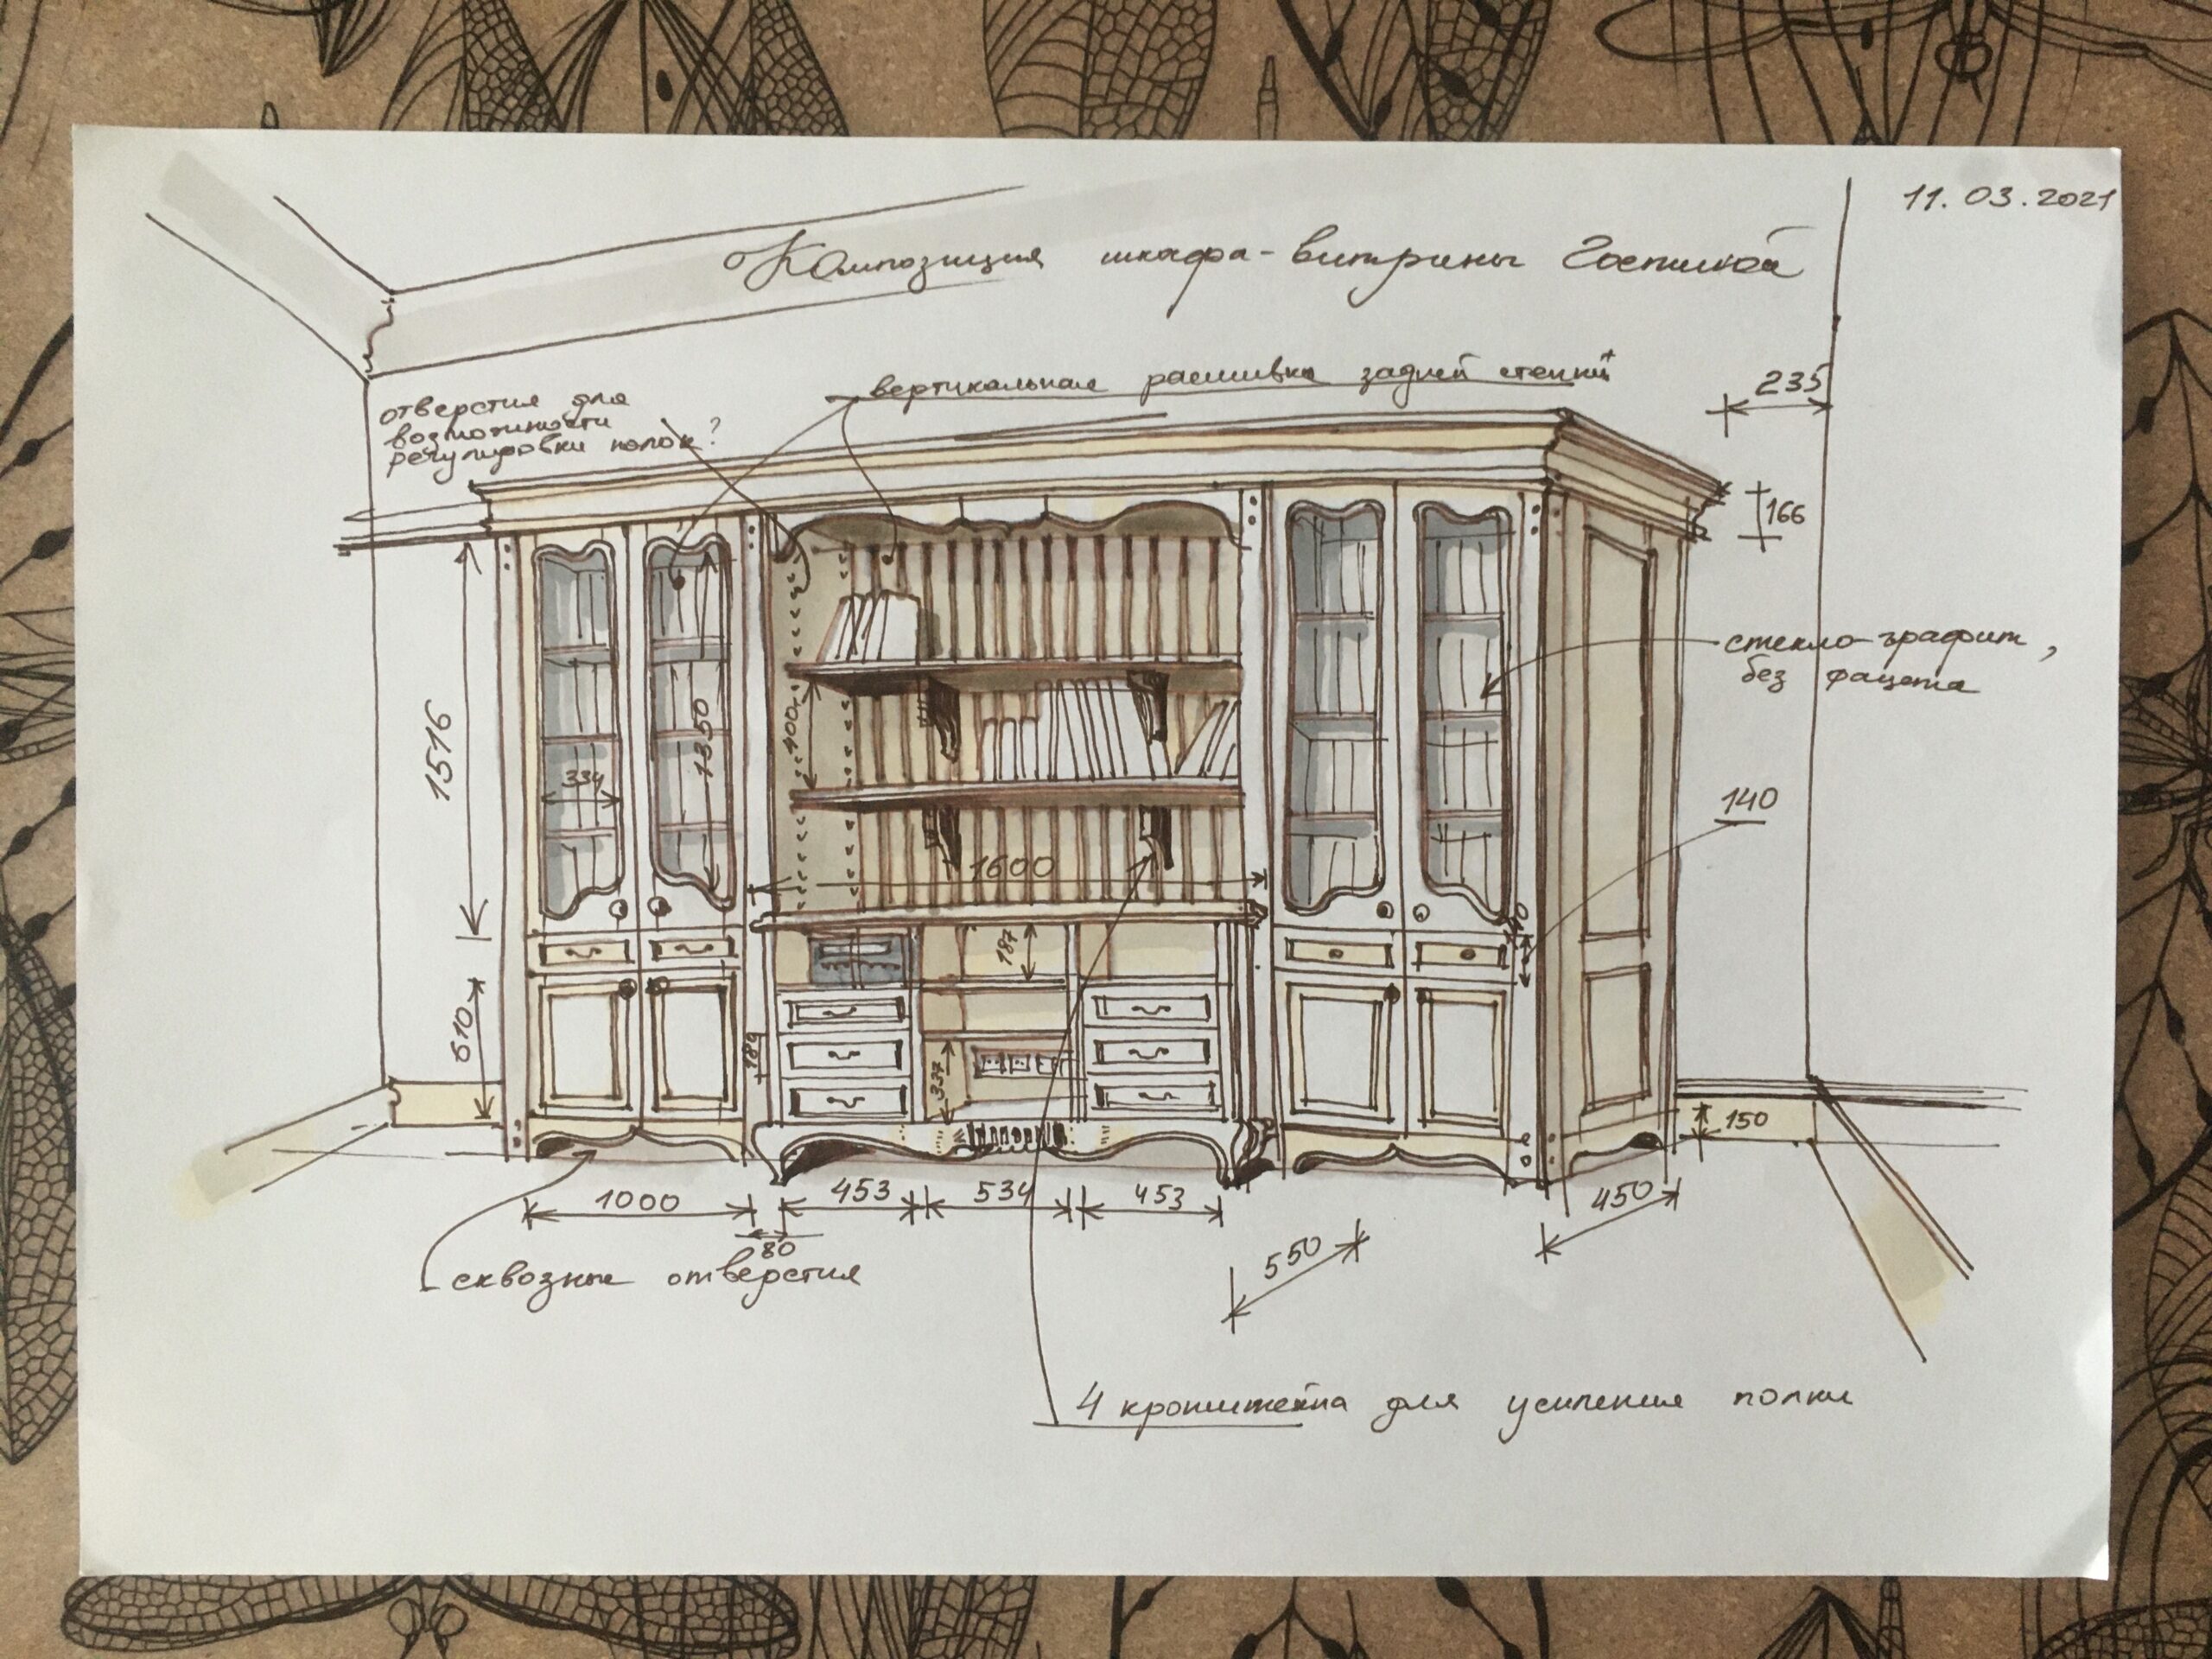 11.03.2021
Композиция шкафа-витрины Гостиной
вертикальная расшивка задней стенки
235
отверстия для
возможности
регулировки полок?
166
стекло-графит,
без фацета
1516
1350
400
334
140
1600
187
610
189
337
150
1000
453
534
453
450
80
550
сквозные отверстия
4 кронштейна для усиления полки